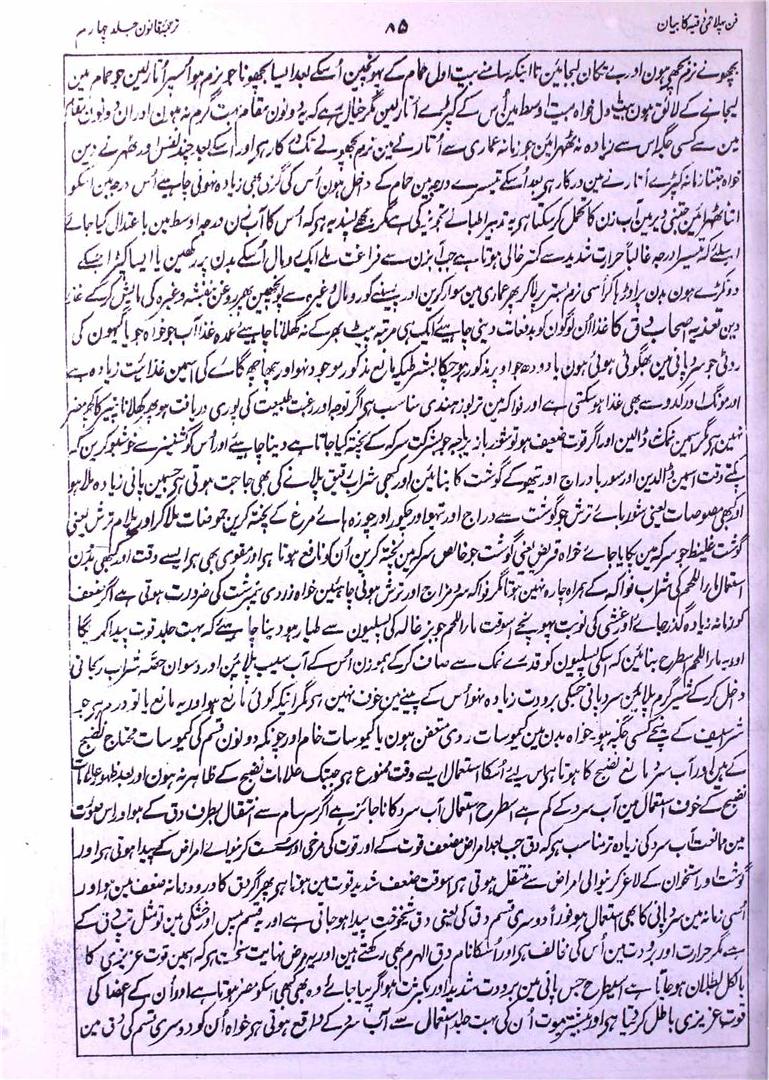 فن پہلا تپ دقیہ کا بیان
۸۵
ترجمۂ قانون جلد چہارم
بچھونے نرم بچھے ہون اور بے تکان لیجائین تا اینکہ سامنے بیت اول حمام کے پہونچین اُسکے بعد ایسا بچھونا جو نرم ہو اُسپر اُتارلین جو حمام مین
لیجانے کے لائق ہون بیت اول خواہ بیت اوسط مین اُس کے کپڑے اُتارلین مگر خیال رہے کہ یہ دونون مقام بہت گرم نہ ہون اور ان دونون مقام
مین سے کسی جگہ اس سے زیادہ نہ ٹھہرائین جو زمانہ عماری سے اُتارنے مین نرم بچھونے تک درکار ہو اور اسکے بعد چند نفس اور ٹھہرنے دین
خواہ جتنا زمانہ کپڑے اُتارنے مین درکار ہو بعد اُسکے تیسرے درجہ مین حمام کے داخل ہون اُس کی گرمی بھی زیادہ نہونی چاہیے اُس درجہ مین اسکو
اتنا ٹھہرائین جتنی دیر مین آب زن کا تحمل کرسکتا ہو یہ تدبیر اطبا نے تجویز کی ہے مگر مجھے پسند یہ ہو کہ اُس کا آب زن درجہ اوسط مین باعتدال کیا جائے
اسلیے کہ تیسرا درجہ غالباً حرارت شدید سے کمتر خالی ہوتا ہے جب آبزن سے فراغت ملے ایک رومال اُسکے بدن پر رکھین یا ایسا کپڑا جسکے
دو ٹکڑے ہون بدن پر اوڑھا کر اُسی نرم بستر پر لاکر پھر عماری مین سوار کرین اور پسینے کو رومال وغیرہ سے پونچھین پھر روغن بنفشہ وغیرہ کی مالش کرکے غذا
دین تغذیہ اصحاب دق کا غذا ان لوگون کو بدفعات دینی چاہیے ایک ہی مرتبہ پیٹ بھر کے نہ کھلانا چاہیے عمدہ غذا آب جو خواہ جو یا گیہون کی
روٹی جو سرد پانی مین بھگوئی ہوئی ہون یا دودھ جو اوپر مذکور ہوچکا بشرطیکہ مانع مذکور موجود نہو اور چھاچھ گائے کی اسمین غذائیت زیادہ ہے
اور مونگ اور کدو سے بھی غذا ہوسکتی ہے اور فواکہ مین تربوز ہندی مناسب ہو اگر توجہ اور رغبت طبیعت کی پوری دریافت ہو پھر کھلانا پنیر کا کچھ مضر
نہین ہو مگر اسمین نمک نہ ڈالین اور اگر قوت ضعیف ہو تو شوربا زیرباجہ جو بشرکت سرکہ کے پختہ کیا جاتا ہے دینا چاہیے اور اُس کو کشنیز سے خوشبو کرین کہ
پکتے وقت اسمین ڈالدین اور شوربا دراج اور تیہو کے گوشت کا بنائین اور کبھی شراب رقیق پلانے کی بھی حاجت ہوتی ہو جسمین پانی زیادہ ملا ہو
اور کبھی مصوصات یعنی شوربائے ترش جو گوشت سے دراج اور تیہو اور چکور اور چوزہ ہائے مرغ کے پختہ کرین حموضات ملاکر اور ہلام ترش یعنی
گوشت غلیظ جو سرکہ مین پکایا جائے خواہ قریض یعنی گوشت جو خالص سرکہ مین پختہ کرین اُن کو نافع ہوتا ہو اور مقوی بھی ہو ایسے وقت اور کبھی بدون
استعمال ماء اللحم کی شراب فواکہ کے ہمراہ چارہ نہین ہوتا مگر فواکہ سرد مزاج اور ترش ہونی چاہئین خواہ زردی نیمبرشت کی ضرورت ہوتی ہے اگر ضعف
کو زمانہ زیادہ گذر جائے اور غشی کی نوبت پہونچے اُسوقت ماء اللحم جو بزغالہ کی پسلیون سے طیار ہو دینا چاہیے کہ بہت جلد قوت پیدا کریگا
اور یہ ماء اللحم اسطرح بنائین کہ اسکی پسلیون کو قدرے نمک سے صاف کرکے ہموزن اُس کے آب سیب ملائین اور دسوان حصہ شراب ریحانی
داخل کرکے شیرگرم پلائین سرد پانی جسکی برودت زیادہ نہو اُس کے پینے مین خوف نہین ہو مگر اینکہ کوئی مانع ہو اور یہ مانع یا تو ورم ہو جو
شراسیف کے نیچے کسی جگہ ہو خواہ بدن مین کیموسات ردی متعفن ہون یا کیموسات خام اور چونکہ دونون قسم کی کیموسات محتاج نضج
کے ہین اور آب سرد مانع نضج کا ہوتا ہو اس لیے اُسکا استعمال ایسے وقت ممنوع ہو جبتک علامات نضج کے ظاہر نہون اور بعد ظہور علامات
نضج کے خوف استعمال مین آب سرد کے کم ہے اسطرح استعمال آب سرد کا ناجائز ہے اگر سرسام سے انتقال بطرف دق کے ہو اور اس صورت
مین ممانعت آب سرد کی زیادہ تر مناسب ہو کہ دق جب بعد امراض مضعف قوت کے اور قوت کی مرخی اور سست کرنیوالے امراض کے پیدا ہوتی ہو اور
گوشت اور استخوان کے لاغر کرنیوالی امراض سے منتقل ہوتی ہو اسوقت ضعف شدید قوت مین ہوتا ہو پھر اگر دق کا درود زمانہ ضعف مین ہو اور
اُسی زمانہ مین سرد پانی کا بھی استعمال ہو فوراً دوسری قسم دق کی یعنی دق شیخوخت پیدا ہوجاتی ہے اور یہ قسم یبس اور خشکی مین تو مثل تپ دق کے
ہے مگر حرارت اور برودت مین اُس کی مخالف ہو اور اُسکا نام دق الہرم بھی رکھتے ہین اور یہ مرض نہایت سخت ہو کہ اسمین قوت غریزی کا
بالکل بطلان ہوجاتا ہے اسیطرح جس پانی مین برودت شدید اور بکثرت ہو اگر پیا جائے وہ بھی کبھی اسکو مضر ہوتا ہے اور اُن کے اعضا کی
قوت غریزی باطل کردیتا ہو اور بیشتر موت اُن کی بہت جلد استعمال سے آب سرد کے واقع ہوتی ہو خواہ اُن کو دوسری قسم کی دق مین